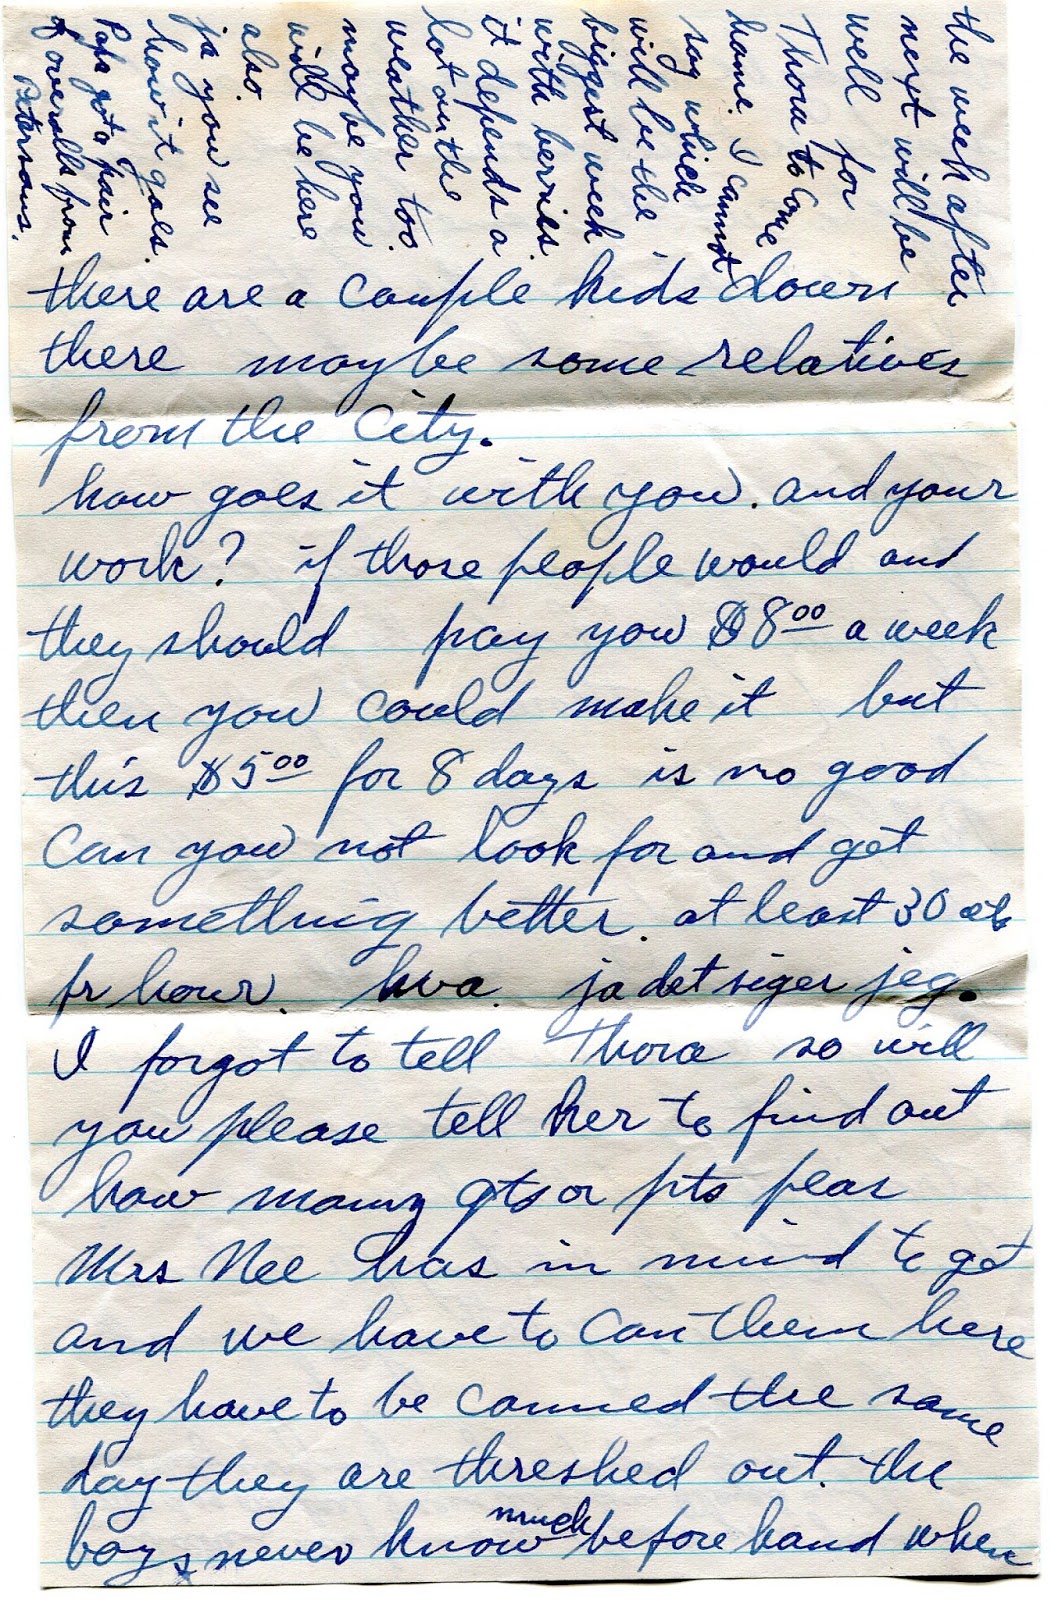 the week after
next will be
well for
Thora to come
home. I cannot
say which
will be the
biggest week
with berries.
it depends a
lot on the
weather too.
maybe you
will be here
also.
ja you see
how it goes.
Papa got a pair
of overalls from
Petersons.
there are a couple kids down
there maybe some relatives
from the City.
how goes it with you. and your
work? if those people would and
they should pay you $8.00 a week
then you could make it but
this $5.00 for 8 days is no good
Can you not look for and get
something better. at least 30 cts
pr hour. hva. ja det siger jeg.
I forgot to tell Thora so will
you please tell her to find out
how many qts or pts peas
Mrs Nee has in mind to get
and we have to can them here
they have to be canned the same
day they are threshed out. the
boys never know much before hand when